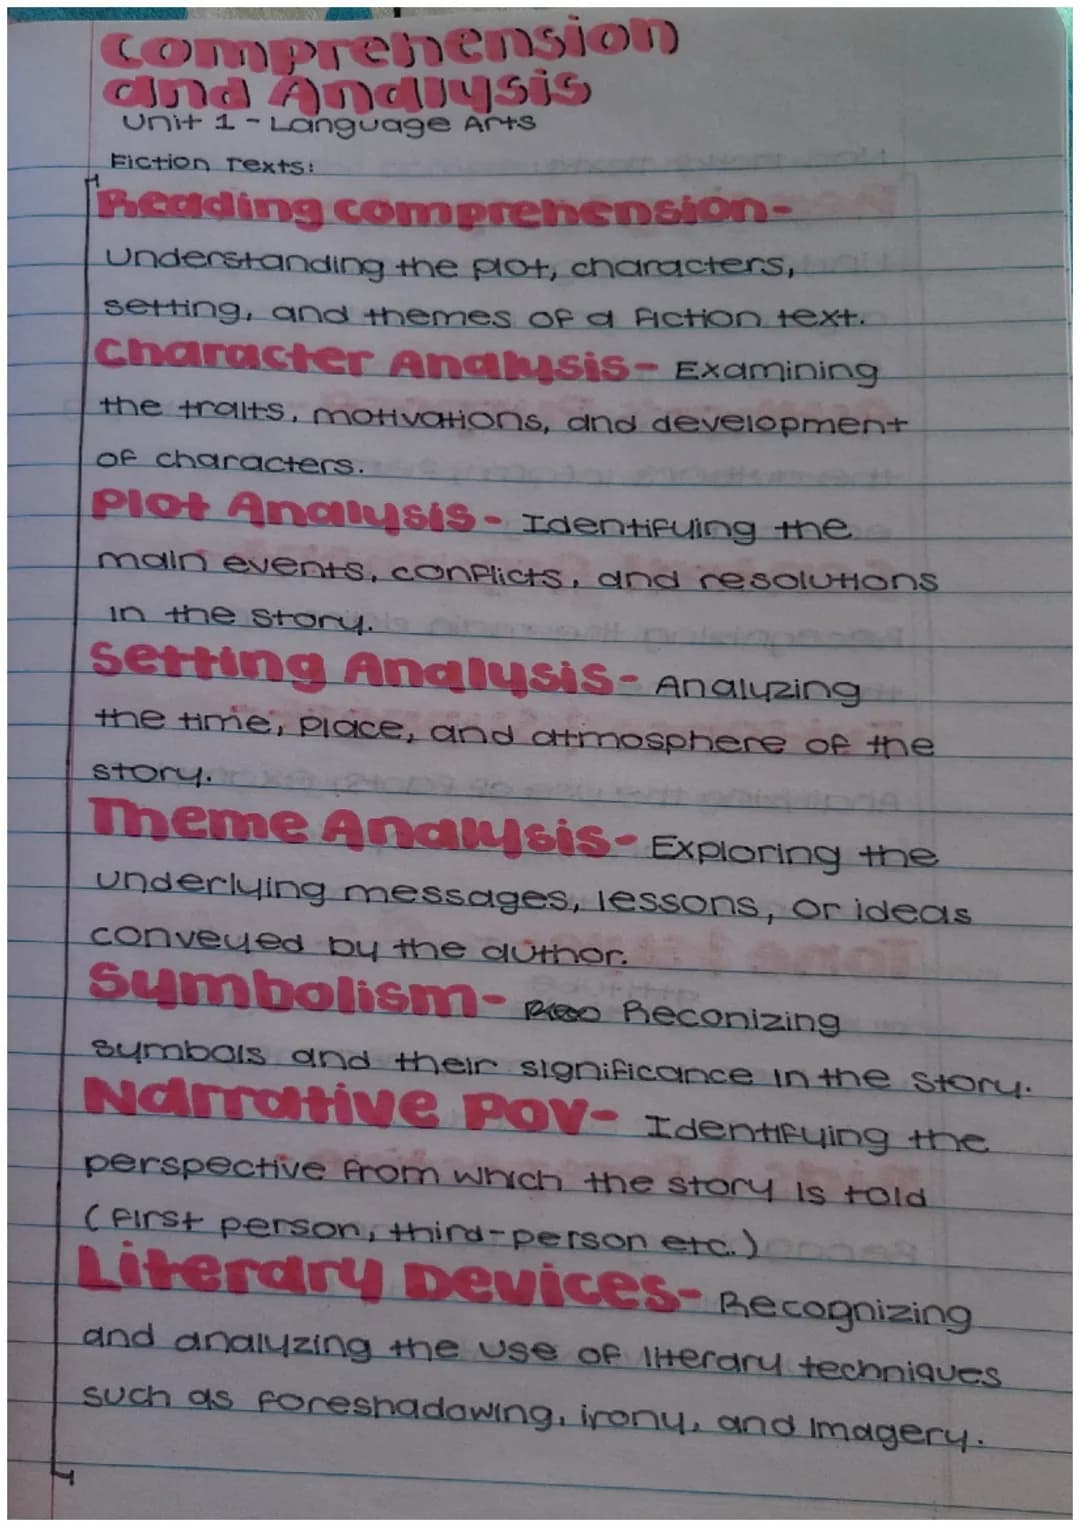 Comprehension
and Analysis
Unit 1 - Language Arts
Fiction Texts:
Reading comprehension-
Understanding the plot, characters,
setting, and themes of a fiction text.
Character Analysis- Examining
the traits, motivations, and development
of characters.
Plot Analysis- Identifying the
main events, conflicts, and resolutions
in the story.
Setting Analysis- Analyzing
the time, place, and atmosphere of the
story.
Theme Analysis- Exploring the
underlying messages, lessons, or ideas
conveyed by the author.
Symbolism- Reconizing
symbols and their significance in the story.
Narrative POV- Identifying the
perspective from which the story is told
(First person, third-person etc.)
Literary Devices- Recognizing
and analyzing the use of literary techniques
such as foreshadowing, irony, and imagery.